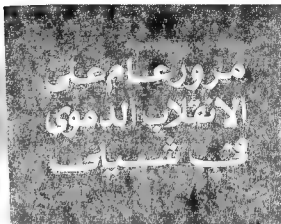 مرور عام على
الانقلاب الدموى
فى شيلى